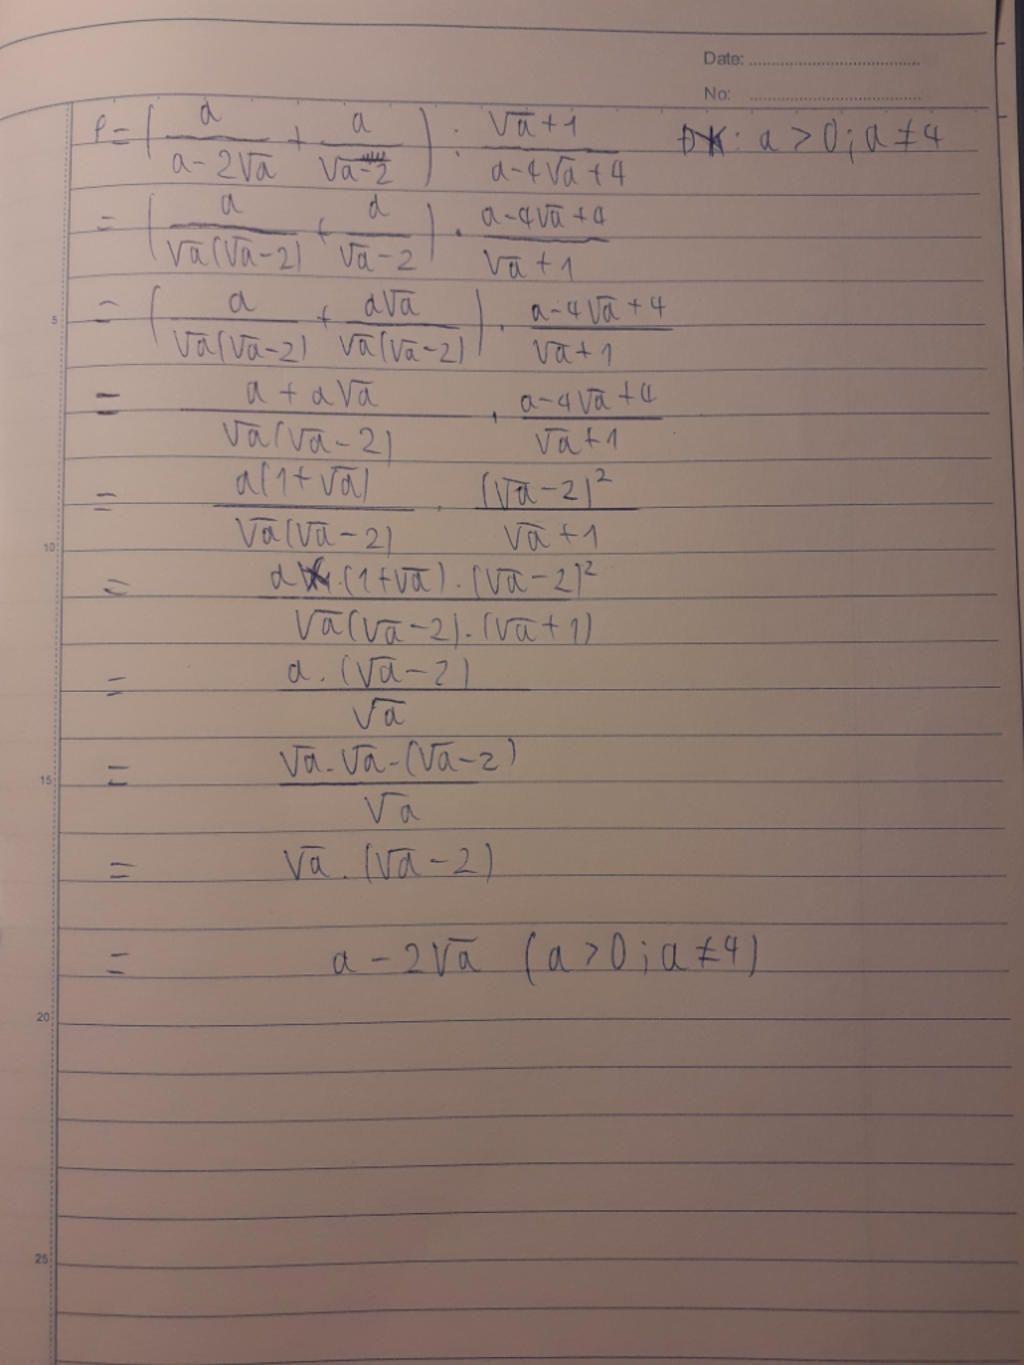 Date: ..........
No: ..........
P = ( a/(a - 2√a) + a/(√a - 2) ) : (√a + 1)/(a - 4√a + 4) ĐK: a > 0; a ≠ 4
= ( a/(√a(√a - 2)) + a/(√a - 2) ) . (a - 4√a + 4)/(√a + 1)
5
= ( a/(√a(√a - 2)) + a√a/(√a(√a - 2)) ) . (a - 4√a + 4)/(√a + 1)
= (a + a√a)/(√a(√a - 2)) . (a - 4√a + 4)/(√a + 1)
= a(1 + √a)/(√a(√a - 2)) . (√a - 2)²/(√a + 1)
10
= a . (1 + √a) . (√a - 2)²/(√a(√a - 2) . (√a + 1))
= a . (√a - 2)/√a
15
= √a . √a . (√a - 2)/√a
= √a . (√a - 2)
= a - 2√a (a > 0; a ≠ 4)
20
25